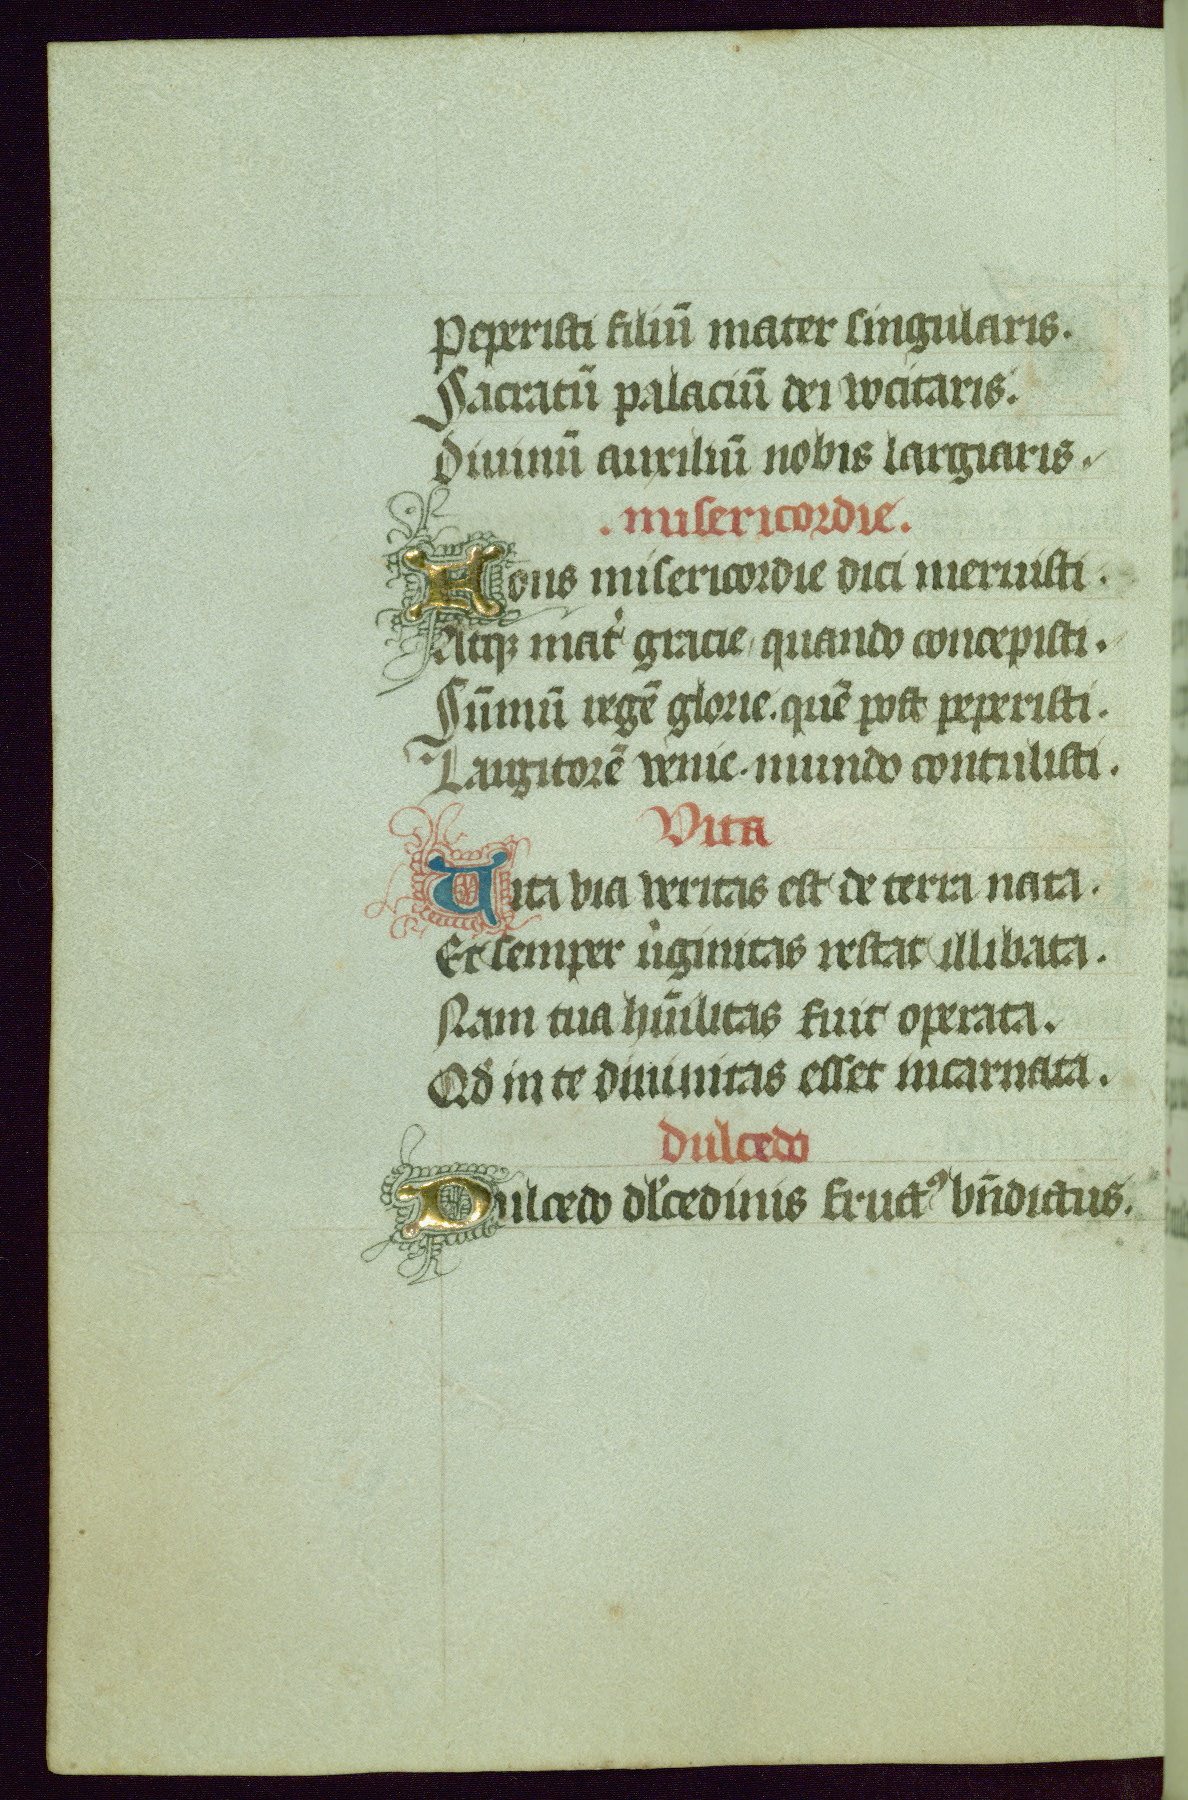 Peperisti filiū mater singularis.
Sacratū palaciū dei vocitaris.
Diuinū auxiliū nobis largiaris.
.misericordie.
Fons misericordie dici meruisti.
Atqꝫ mat͛ gracie quando concepisti.
Sūmū regē glorie. quē post peperisti.
Largitorē venie. mundo contulisti.
Vita
Uita via veritas est de terra nata.
Et semper uͥginitas restat illibata.
Nam tua hūilitas fuit operata.
Qd̄ in te diuinitas esset incarnata.
Dulcedo
Dulcedo dl̛cedinis fructꝰ bn̄dictus.